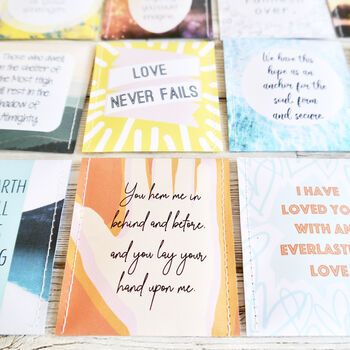 over.
Those who dwell
in the shelter of
the Most High
will rest in the
shadow of
Almighty.
LOVE
NEVER FAILS
We have this
hope as an
anchor for the
soul, firm
and secure.
You hem me in
behind and before,
and you lay your
hand upon me.
I HAVE
LOVED YOU
WITH AN
EVERLASTING
LOVE